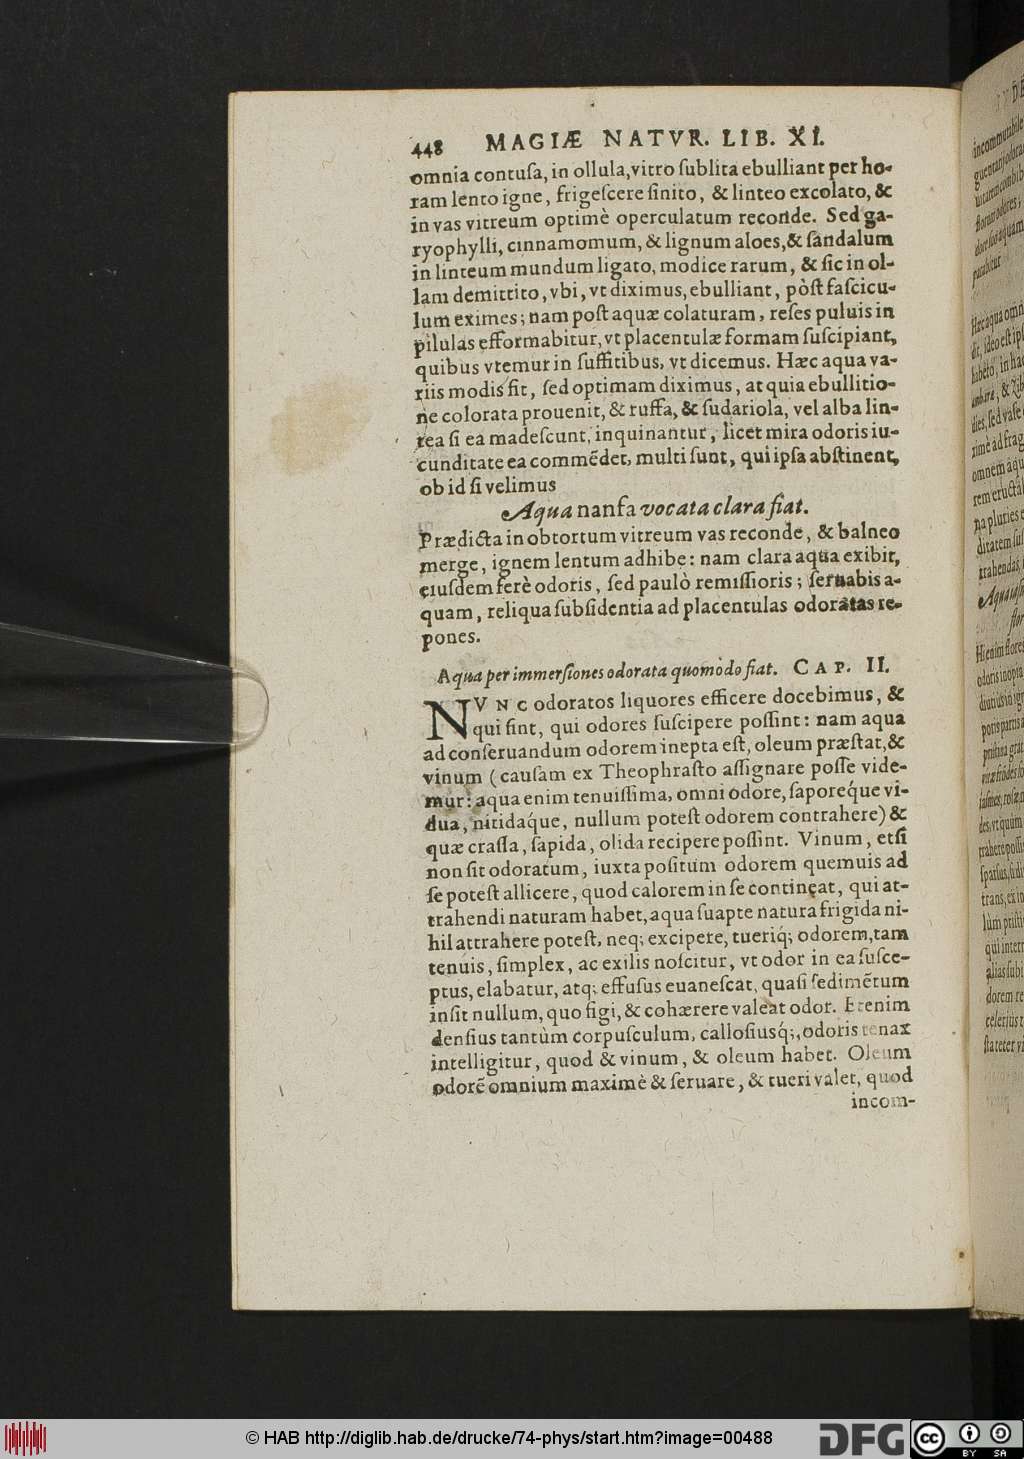 448 MAGIÆ NATVR. LIB. XI.
omnia contuſa, in ollula, vitro ſublita ebulliant per ho-
ram lento igne, frigeſcere ſinito, & linteo excolato, &
in vas vitreum optimè operculatum reconde. Sed ga-
ryophylli, cinnamomum, & lignum aloes, & ſandalum
in linteum mundum ligato, modice rarum, & ſic in ol-
lam demittito, vbi, vt diximus, ebulliant, pòſt faſcicu-
lum eximes; nam poſt aquæ colaturam, reſes puluis in
pilulas efformabitur, vt placentulæ formam ſuſcipiant,
quibus vtemur in ſuffitibus, vt dicemus. Hæc aqua va-
riis modis fit, ſed optimam diximus, at quia ebullitio-
ne colorata prouenit, & ruffa, & ſudariola, vel alba lin-
tea ſi ea madeſcunt, inquinantur, licet mira odoris iu-
cunditate ea commēdet, multi ſunt, qui ipſa abſtinent,
ob id ſi velimus
Aqua nanfa vocata clara fiat.
Prædicta in obtortum vitreum vas reconde, & balneo
merge, ignem lentum adhibe: nam clara aqua exibit,
eiuſdem ferè odoris, ſed paulò remiſſioris; ſeruabis a-
quam, reliqua ſubſidentia ad placentulas odoratas re-
pones.
Aqua per immerſiones odorata quomodo fiat. CAP. II.
NVNC odoratos liquores efficere docebimus, &
qui ſint, qui odores ſuſcipere poſſint: nam aqua
ad conſeruandum odorem inepta eſt, oleum præſtat, &
vinum (cauſam ex Theophraſto aſſignare poſſe vide-
mur: aqua enim tenuiſſima, omni odore, ſaporeq́ue vi-
dua, nitidaq́ue, nullum poteſt odorem contrahere) &
quæ craſſa, ſapida, olida recipere poſſint. Vinum, etſi
non ſit odoratum, iuxta poſitum odorem quemuis ad
ſe poteſt allicere, quod calorem in ſe contineat, qui at-
trahendi naturam habet, aqua ſuapte natura frigida ni-
hil attrahere poteſt, neq; excipere, tueriq́; odorem, tam
tenuis, ſimplex, ac exilis noſcitur, vt odor in ea ſuſce-
ptus, elabatur, atq; effuſus euaneſcat, quaſi ſedimētum
inſit nullum, quo figi, & cohærere valeat odor. Etenim
denſius tantùm corpuſculum, calloſiusq́;, odoris tenax
intelligitur, quod & vinum, & oleum habet. Oleum
odorē omnium maximè & ſeruare, & tueri valet, quod
incom-
© HAB http://diglib.hab.de/drucke/74-phys/start.htm?image=00488
DFG
cc BY SA